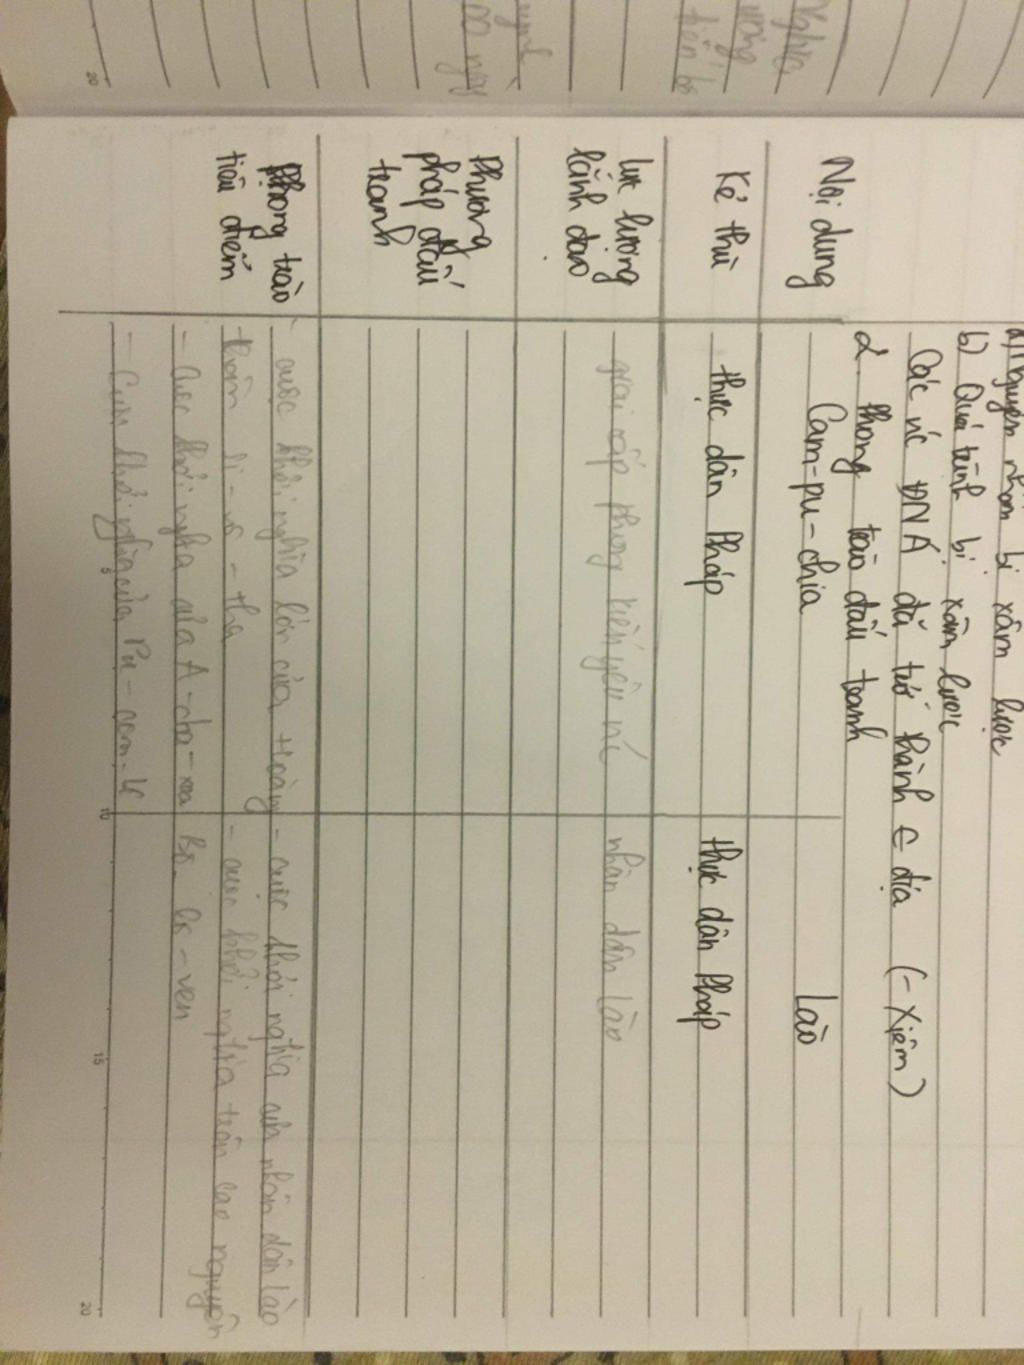 a) Nguyên nhân bị xâm lược
b) Quá trình bị xâm lược
Các nc ĐNÁ đã trở thành € địa (- Xiêm)
2. Phong trào đấu tranh
Nội dung
Cam-pu-chia
Lào
Kẻ thù
thực dân Pháp
thực dân Pháp
lực lượng
lãnh đạo
giai cấp phong kiến yêu nc
nhân dân Lào
Phương
pháp đấu
tranh
Phong trào
tiêu điểm
- cuộc khởi nghĩa lớn của Hoàng
thân Si-vô-tha
- Cuộc khởi nghĩa của A-cha-xoa
- Cuộc khởi nghĩa của Pu-com-
- cuộc khởi nghĩa của nhân dân Lào
- cuộc khởi nghĩa trên cao nguyên
Bô-lô-ven
5
10
15
20
20